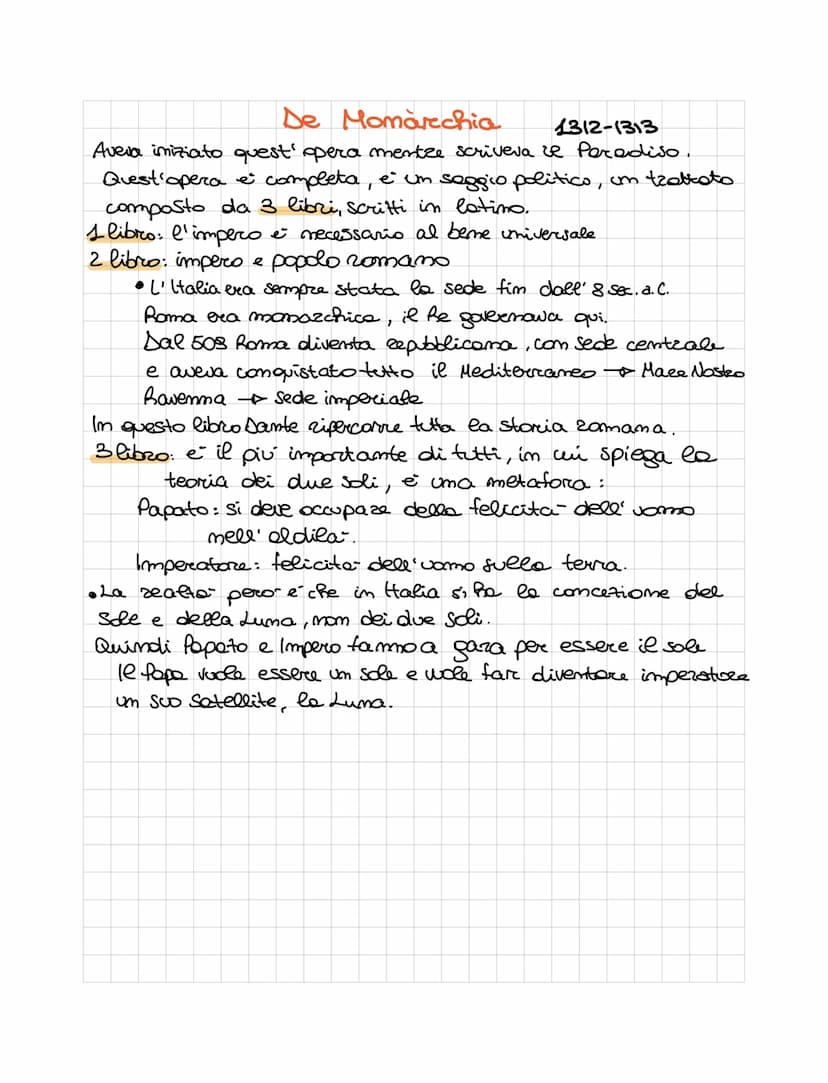 De Monàrchia 1312-1313
Aveva iniziato quest' opera mentre scriveva il Paradiso.
Quest'opera è completa, è un saggio politico, un trattato
composto da 3 libri, scritti in latino.
1 libro: l'impero è necessario al bene universale
2 libro: impero e popolo romano
• L' Italia era sempre stata la sede fin dall' 8 sec. a.C.
Roma era monarchica, il Re governava qui.
Dal 509 Roma diventa repubblicana, con sede centrale
e aveva conquistato tutto il Mediterraneo → Mare Nostro
Ravenna → sede imperiale
In questo libro Dante ripercorre tutta la storia romana.
3 libro: è il più importante di tutti, in cui spiega la
teoria dei due soli, è una metafora:
Papato: si deve occupare della felicità dell' uomo
nell' aldilà.
Imperatore: felicità dell'uomo sulla terra.
• La realtà però è che in Italia si ha la concezione del
Sole e della Luna, non dei due soli.
Quindi Papato e Impero fanno a gara per essere il sole
Il Papa vuole essere un sole e vuole far diventare imperatore
un suo satellite, la Luna.